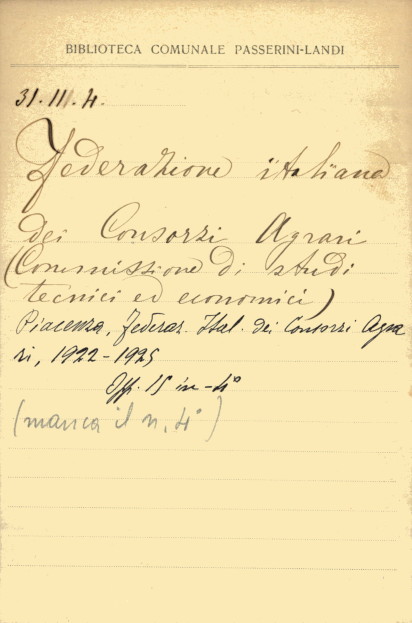 BIBLIOTECA COMUNALE PASSERINI-LANDI
31. III. 4.
Federazione italiana
dei Consorzi Agrari
(Commissione di studi
tecnici ed economici)
Piacenza, Federaz. Ital. dei Consorzi Agra
ri, 1922-1925
Opp. 15 in-4°
(manca il n. 4°)